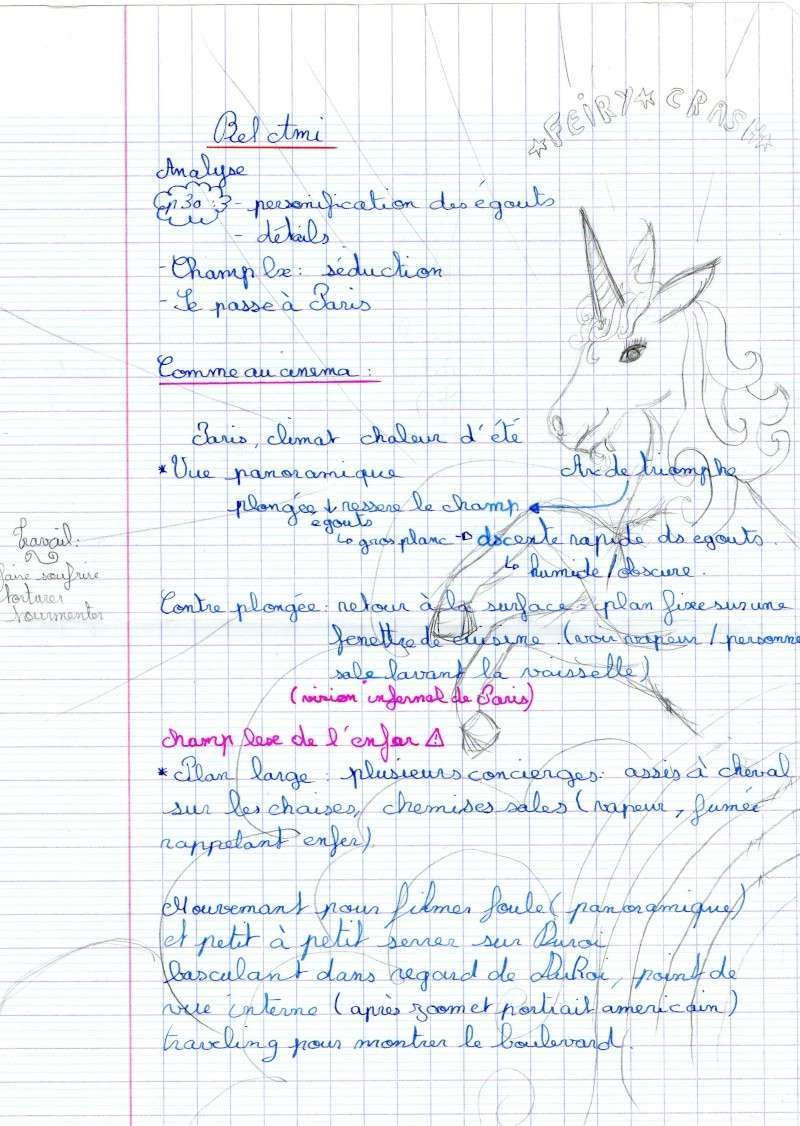 Bel Ami
★FEIRY★CRASH★
Analyse
p30 : 3 - personification des égouts
- détails
- Champ lx : séduction
- Se passe à Paris
Comme au cinema :
Paris, climat chaleur d'été
* Vue panoramique
Arc de triomphe
plongée ↓ ressere le champ
egouts
↳ gros planc → descente rapide ds egouts.
↳ humide / obscure.
Travail:
faire soufrire
torturer
tourmenter
Contre plongée : retour à la surface = plan fixe sur une
fenettre de cuisine. (voir vapeur / personne
sale lavant la vaisselle)
(vision infernal de Paris)
champ lexe de l'enfer ⚠
* Plan large : plusieurs concierges : assis à cheval
sur les chaises, chemises sales (vapeur, fumée
rappelant enfer)
Mouvemant pour filmer foule (panoramique)
et petit à petit serrer sur Duroi
basculant dans regard de DuRoi, point de
vue interne (après zoom et portrait americain)
traveling pour montrer le boulevard.